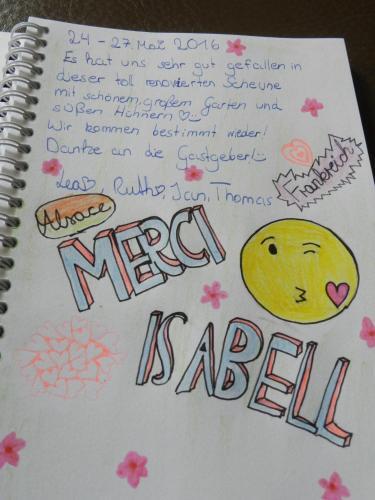 24 - 27. Mai 2016
Es hat uns sehr gut gefallen in
dieser toll renovierten Scheune
mit schönem, großem Garten und
süßen Hühnern ♡
Wir kommen bestimmt wieder!
Danke an die Gastgeber!
Lea♡, Ruth♡, Jan, Thomas
Frankreich
Alsace
MERCI
ISABELL